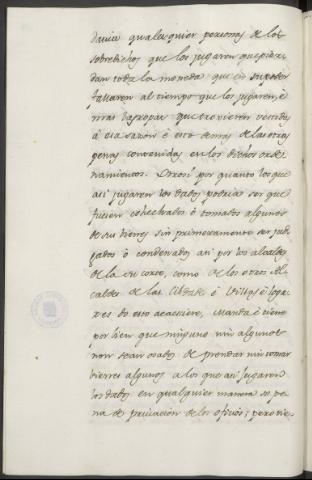 davia qualesquier personas de los
sobredichos que los jugaren que pier-
dan toda la moneda que en su poder
fallaren al tiempo que los jugaren, é
mas las ropas que trovieren vestidas
á esa sazon é esto demas de las otras
penas contenidas en los dichos orde-
namientos. Otrosi por quanto los que
asi jugaren los dados podria ser que
fuesen cohechados ó tomados algunos
de sus bienes sin primeramente ser jud-
gados ó condenados asi por los alcaldes
de la su corte, como de los otros Al-
caldes de las Cibdades é Villas é loga-
res do esto acaesciere, Manda é tiene
por bien que ninguno nin algunos
non sean osados de prendar nin tomar
bienes algunos a los que asi jugaren
los dados en qualquier manera so pe-
na de privacion de los oficios; pero vie-